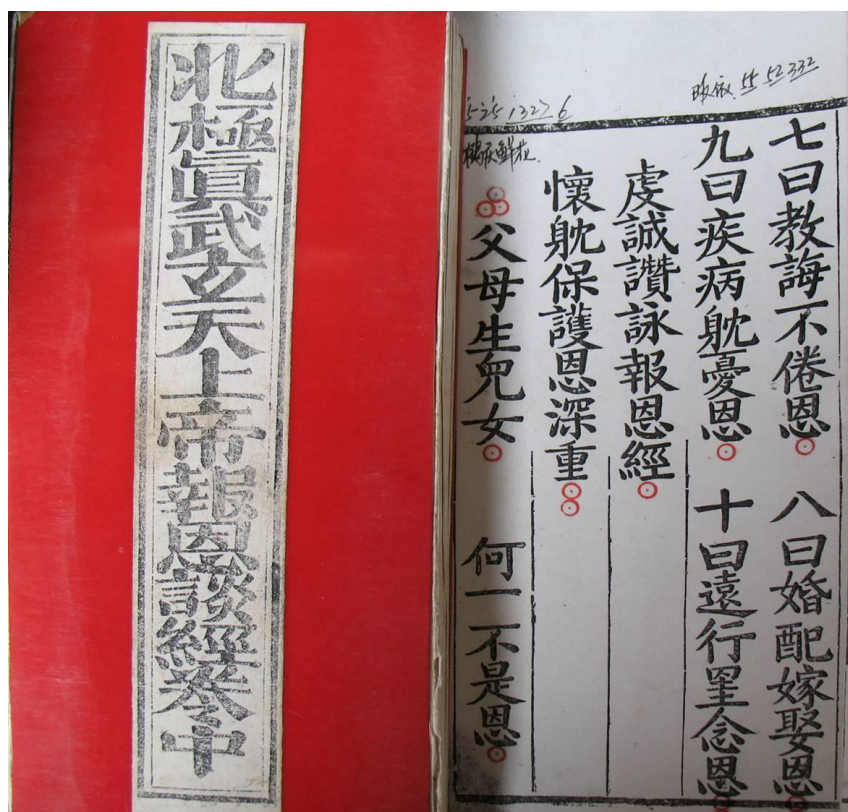 北極眞武玄天上帝報恩談經卷中
七曰教誨不倦恩 八曰婚配嫁娶恩
九曰疾病躭憂恩 十曰遠行罣念恩
虔誠讚詠報恩經
懷躭保護恩深重
父母生兒女 何一不是恩